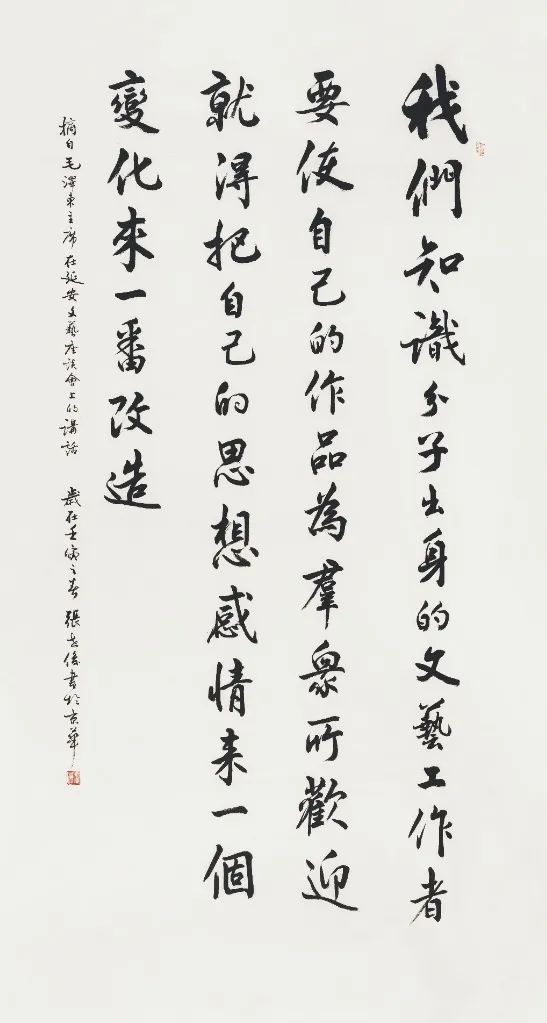 我們知識分子出身的文藝工作者
要使自己的作品為羣衆所歡迎
就得把自己的思想感情来一個
變化來一番改造
摘自毛澤東主席在延安文藝座談會上的講話 歲在壬寅之春 張志俊書於京華